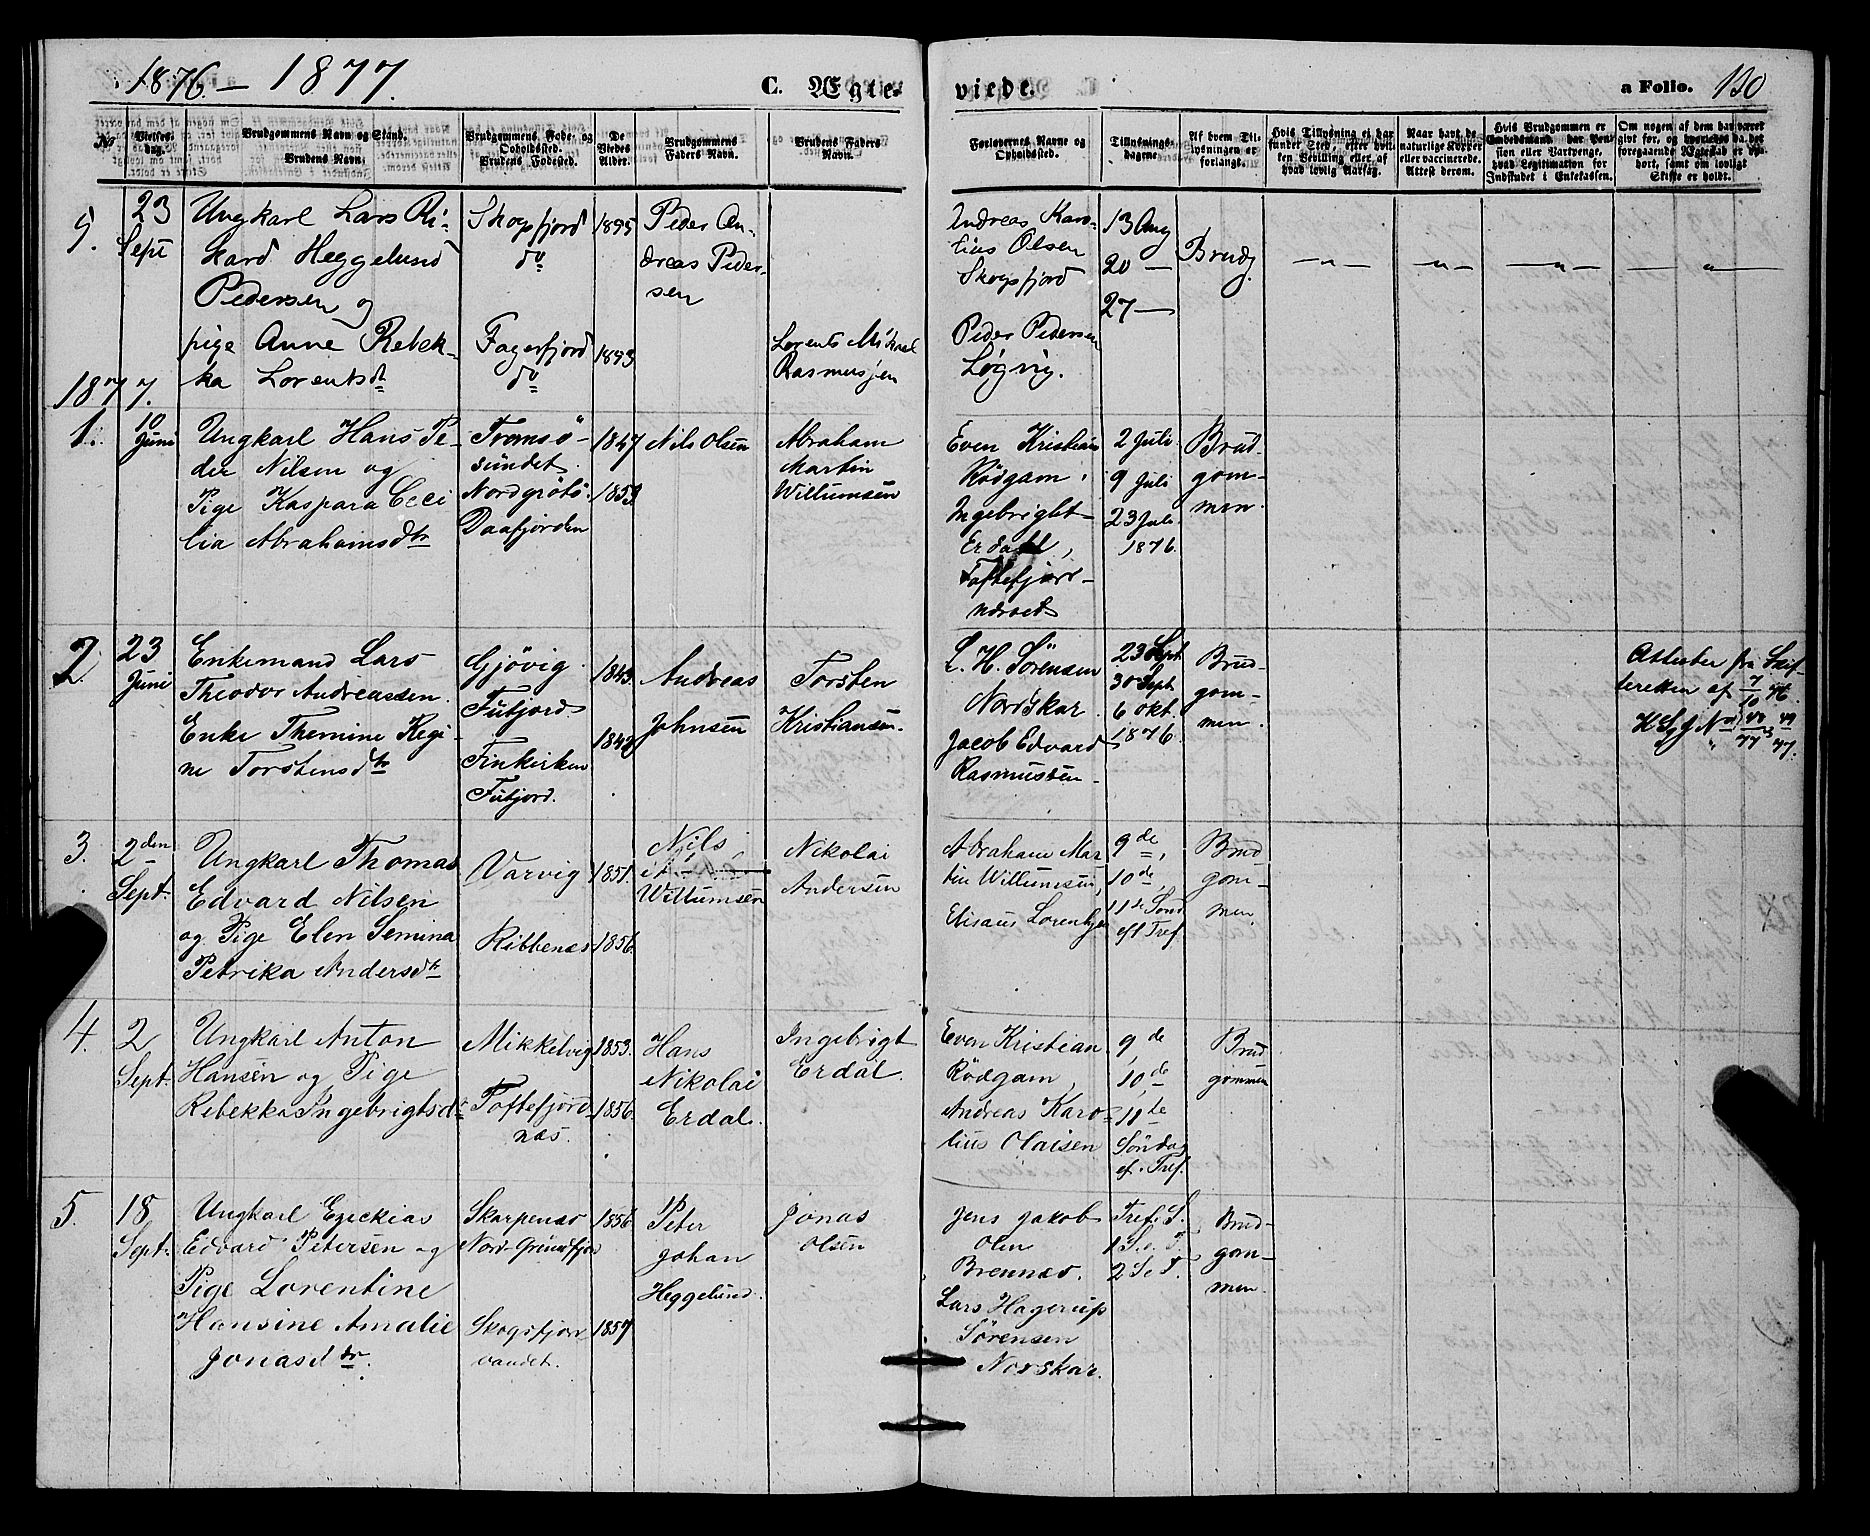 1876 – 1877.
C. Ægteviede.
a Folio. 130
No.
Vielses-dag.
Brudgommens Navn og Stand.
Brudens Navn.
Brudgommens Føde- og Opholdssted.
Brudens Fødested.
De Viedes Alder.
Brudgommens Faders Navn.
Brudens Faders Navn.
Forlovernes Navne og Opholdssted.
Tillysnings-dagene.
Af hvem Tillysningen er forlangt.
Hvis Tillysning ei har fundet Sted, efter hvilken Bevilling eller af hvad lovlig Aarsag.
Naar havt de naturlige Kopper eller vaccinerede. Attest derom.
Hvis Brudgommen er Embedsmand, har Pension eller Vartpenge, hvad Legitimation for Indskudet i Enkekassen.
Om nogen af dem har været givt før, og hvorledes da det foregaaende Ægteskab er ophørt, samt om lovligt Skifte er holdt.
5.
23
Sept
Ungkarl Lars Ri-
kard Heggelund
Pedersen og
pige Anne Rebek-
ka Lorentsdtr
Skogsfjord
do
Fagerfjord
do
1895
1893
Peder An-
dreas Peder-
sen
Lorents Mikael
Rasmusjen
Andreas Karo-
lius Olsen
Skogsfjord
Peder Pedersen
Løgvig.
13 Aug
20 —
27 —
Brudg.
— " —
— " —
— " —
— " —
1877.
1.
10
Juni
Ungkarl Hans Pe-
der Nilsen og
Pige Kaspara Ceci
lia Abrahamsdtr
Tromsö-
sundet.
Nordgrötö.
Daafjorden
1847
1853.
Nils Olsen
Abraham
Martin
Willumsen
Even Kristian
Rödgam,
Ingebright
Erdahl,
Toftefjord-
næsset
2 Juli.
9 Juli
23 Juli
1876.
Brud-
gom-
men.
2.
23
Juni
Enkemand Lars
Theodor Andreassen.
Enke Themine Regi-
ne Torstensdtr
Gjövig
Futfjord.
Finkirken
Futfjord.
1843.
1842
Andreas
Johnsen
Torsten
Kristiansen.
L. H. Sörensen
Nordskar
Jacob Edvard
Rasmussen
23 Sept
30 Sept
6 Okt.
1876.
Brud-
gom-
men.
Attester fra Skif-
teretten af 7/10 76.
3.
2den
Sept.
Ungkarl Thomas
Edvard Nilsen
og Pige Elen Semina
Petrika Andersdtr
Varvig
Ribbenæs
1851.
1856.
Nils
Willumsen
Nikolai
Andersen
Abraham Mar-
tin Willumsen,
Elisæus Lorentzen
9de,
10de,
11te Sönd
eft Tref.
Brud
gom-
men
4.
2
Sept.
Ungkarl Anton
Hansen og Pige
Rebekka Ingebrigtsdtr
Mikkelvig
Toftefjord-
næs.
1853.
1856.
Hans
Nikolai
Erdal.
Ingebrigt
Erdal.
Even Kristian
Rödgam,
Andreas Karo-
lius Olaisen
9de,
10de
11te
Söndag
ef. Tref.
Brud
gommen
5.
18
Sept.
Ungkarl Ezeckias
Edvard Petersen og
Pige Lorentine
Hansine Amalie
Jonasdtr.
Skarpenæs
Nord-Grundfjor
Skogsfjor
vandet.
1856
1857
Peter
Johan
Heggelund.
Jonas
Olsen
Jens Jakob
Olen
Brennæs.
Lars Hagerup
Sörensen
Norskar.
Tref. S.
1 S. e. T.
2 S e T.
Brud-
gom-
men.